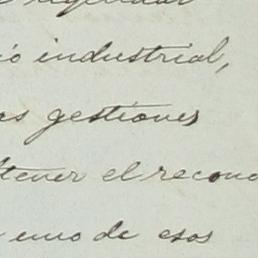 io industrial,
as gestiones
tener el recono
uno de esos